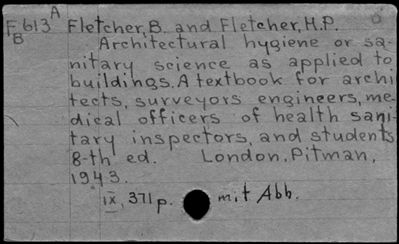 A
F 613 Fletcher, B. and Fletcher, H.P.
B
Architectural hygiene or sa-
nitary science as applied to
buildings. A textbook for archi
tects, surveyors engineers, me-
dical officers of health sani-
tary inspectors, and students
8-th ed. London. Pitman,
1943.
ix, 371 p. mit Abb.